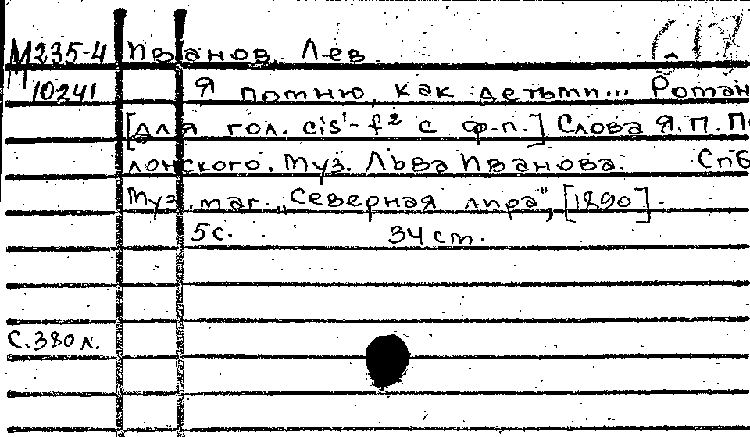 М235-4 Иванов, Лев.
10241 Я помню, как детьми... Роман
[для гол. cis¹-f² с ф-п.] Слова Я.П. По
лонского. Муз. Льва Иванова. Спб
Муз. маг. „Северная лира", [1890].
5с. 34 cm.
С.380 к.